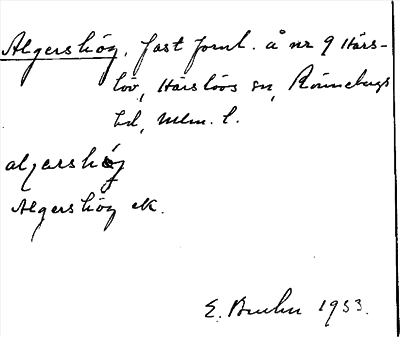 Algershög. fast fornl. å nr 9 Härs-
löv, Härslövs sn, Rönnebergs
hd, Mlm. l.
aljershög
Algershög ek.
E. Bruhn 1933.